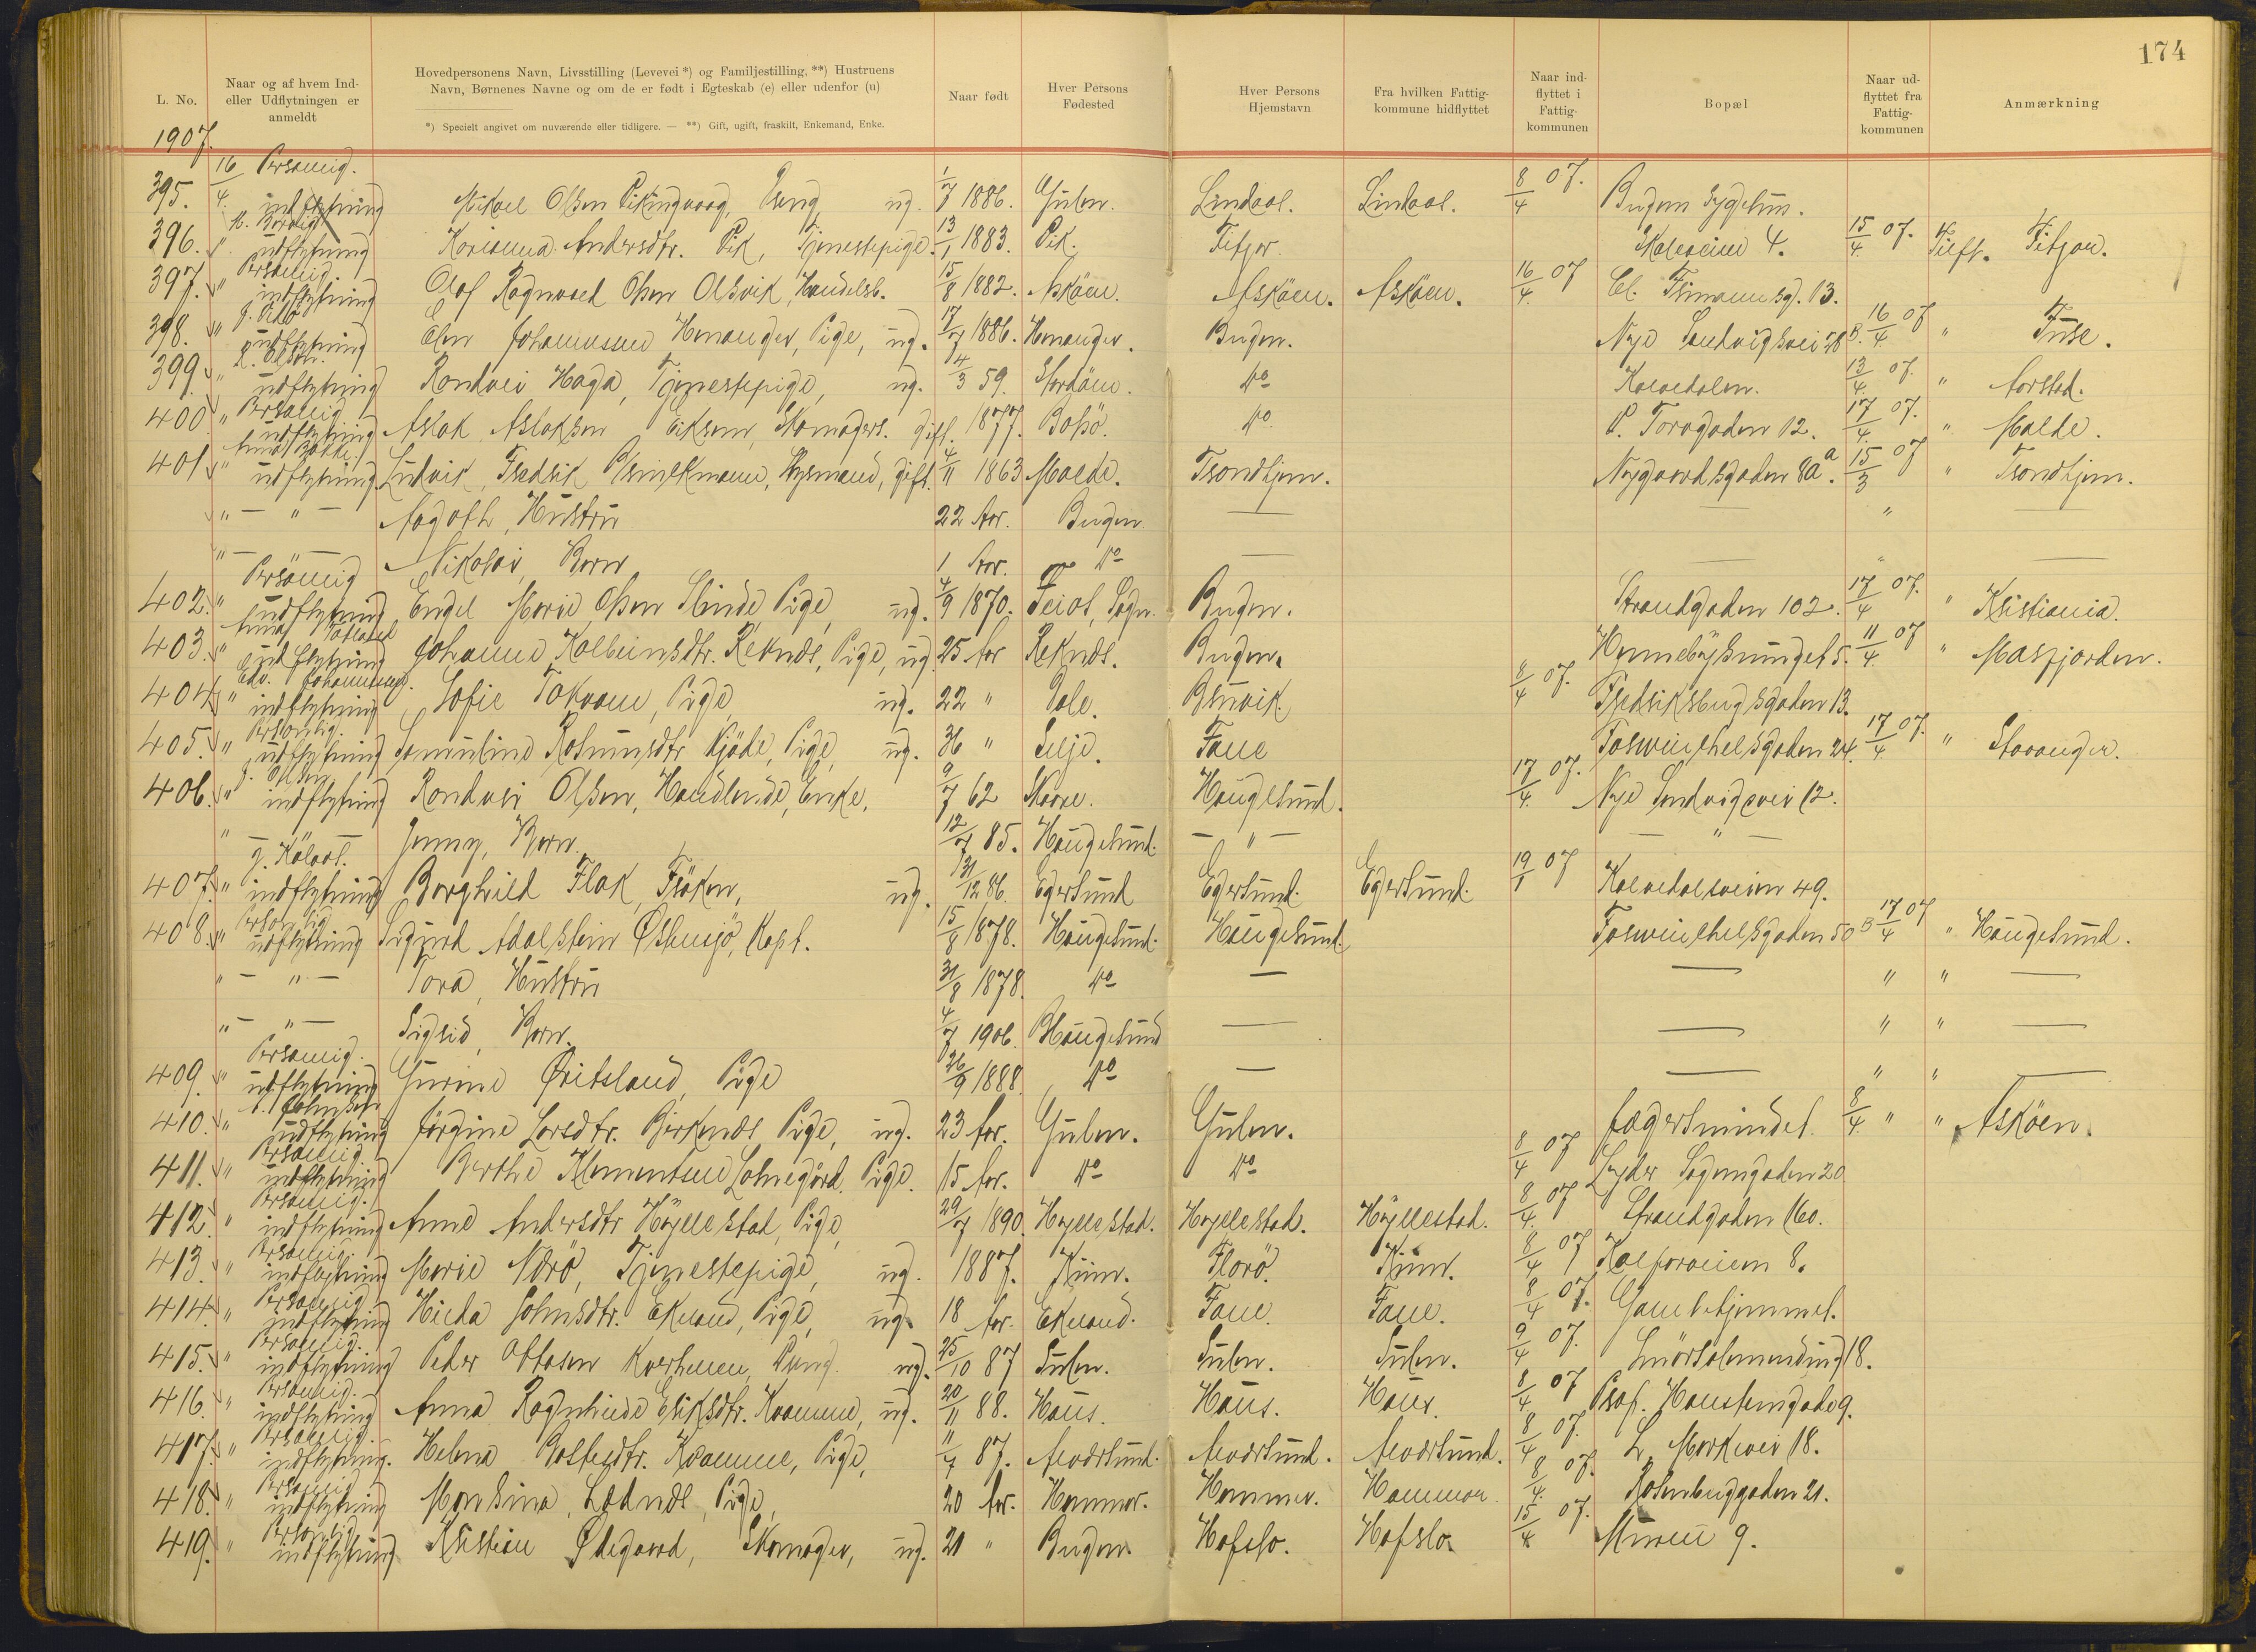 174
L. No.
Naar og af hvem Ind- eller Udflytningen er anmeldt
Hovedpersonens Navn, Livsstilling (Levevei *) og Familjestilling, **) Hustruens Navn, Børnenes Navne og om de er født i Egteskab (e) eller udenfor (u)
*) Specielt angivet om nuværende eller tidligere. — **) Gift, ugift, fraskilt, Enkemand, Enke.
Naar født
Hver Persons Fødested
Hver Persons Hjemstavn
Fra hvilken Fattig- kommune hidflyttet
Naar ind- flyttet i Fattig- kommunen
Bopæl
Naar ud- flyttet fra Fattig- kommunen
Anmærkning
1907.
395. 16/4. Personlig. indflytning Mikael Olsen Vikingvaag, Dreng ug. 1/7 1886. Gulen. Lindaas. Lindaas. 8/4 07. Bergens Sygehus.
396. " udflytning Karianna Andersdtr. Vik, Tjenestepige. 13/1 1883. Vik. Fitjar. Kalvveien 4. 15/4 07. Tilfl. Fitjar.
397. " Personlig. indflytning Olaf Ragnvald Olsen Olsvik, Handelsb. 15/8 1882. Asköen. Asköen. Asköen. 16/4 07 Cl. Frimannsg. 13.
398. " udflytning Elen Johannessen Hernanger, Pige, ug. 17/7 1886. Hernanger. Bergen. Nye Sandvigsvei 28 B. 16/4 07 " Fuse.
399. " udflytning Rondvei Haga, Tjenestepige, ug. 4/3 59. Stordöen. do Kalvedalen. 13/4 07. " Aarstad.
400. " Personlig udflytning Aslak Aslaksen Eiksem, Skomagers. gift. 1877. Bolsö. do V. Torvgaden 12. 17/4 07. " Molde.
401. " udflytning Ludvik Fredrik Brinckmann, gift. 4/11 1863 Molde. Trondhjem. Nygaardsgaden 8a. 15/3 07 " Trondhjem.
" — " — Aagoth, Hustru 22 Aar. Bergen — — " —
" — " — Nikolai, Barn 1 Aar. do — — " —
402. " Personlig udflytning Engel Marie Olsen Slinde, Pige, ug. 4/9 1870. Feios, Sogn. Bergen. Strandgaden 102. 17/4 07. " Kristiania.
403. " udflytning Johanne Kolbeinsdtr. Reknes, Pige, ug. 25 Aar Reknes. Bergen. Hennebysmuget 5. 11/4 07 " Masfjorden.
404. " Edv. Johannesen. indflytning Sofie Takvam, Pige ug. 22 " Dale. Bruvik. 8/4 07. Fredriksbergsgaden 13.
405. " Personlig. udflytning Samueline Rasmusdtr. Kjöde, Pige, ug. 36 " Selje. Fane Torvenskjoldsgaden 24. 17/4 07. " Stavanger.
406. " J. Olsen indflytning Rondvei Olsen, Handlende, Enke, 9/7 62 Skaare. Haugesund. 17/4. 07. Nye Sandvigsvei 12.
" — Jenny, Barn. 12/7 85. Haugesund. — " — — " —
407. " indflytning Borghild Flak, Fröken, ug. 31/12 86. Egersund Egersund. Egersund. 19/1 07 Kalvedalsveien 49.
408. " Personlig udflytning Sigurd Adalstein Østensjö, Kapt. 15/8 1878. Haugesund. Haugesund. 50 B 17/4 07 " Haugesund.
" — " — Tora, Hustru 31/8 1878. do — — " " —
" — " — Sigrid, Barn. 4/7 1906. Haugesund — — " " —
409. " Personlig. udflytning Gurine Øritsland, Pige 26/9 1888. do — — " " —
410. " udflytning Jörgine Larsdtr. Birknes, Pige, ug. 23 Aar. Gulen. Gulen. Jægersmindet. 8/4. " " Asköen.
411. " Personlig indflytning Berthe Klementsen Lohnegård, Pige. 15 Aar. do do 8/4 07 Lyder Sagensgaden 20
412. " Personlig. indflytning Anne Andersdtr. Höyllestad, Pige, 29/7 1890. Hyllestad. Hyllestad. Höyllestad. 8/4. 07 Strandgaden 160.
413. " Personlig. indflytning Marie Nærö, Tjenestepige, ug. 1887. Kinn. Florö. Kinn. 8/4 07 Kalfarveien 8.
414. " Personlig indflytning Hilda Johnsdtr. Ekeland, Pige, ug. 18 Aar. Ekeland. Fane. Fane. 8/4 07. Gamlehjemmet.
415. " Personlig. indflytning Peder Ottosen Kverhellen, Dreng. ug. 25/10 87 Sulen. Sulen. Sulen. 9/4 07. 18.
416. " Personlig. indflytning Anna Ragnhilde Eriksdtr. Kvamme, ug. 20/11 88. Haus. Haus. Haus. 8/4 07 Prof. Hansteensgade 9.
417. " Personlig. indflytning. Helena Kvamme, Pige, 11/7 87. Alversund. Alversund. Alversund. 8/4 07. L. Markevei 18.
418. " Personlig indflytning Monsina Lednes, Pige, 20 Aar. Hammer. Hammer. Hammer. 8/4. 07. Rosenberggaden 21.
419. " Personlig indflytning Kristian Ødegaard, Skomager, ug. 21 " Bergen. Hafslo. Hafslo. 15/4 07. Muren 9.